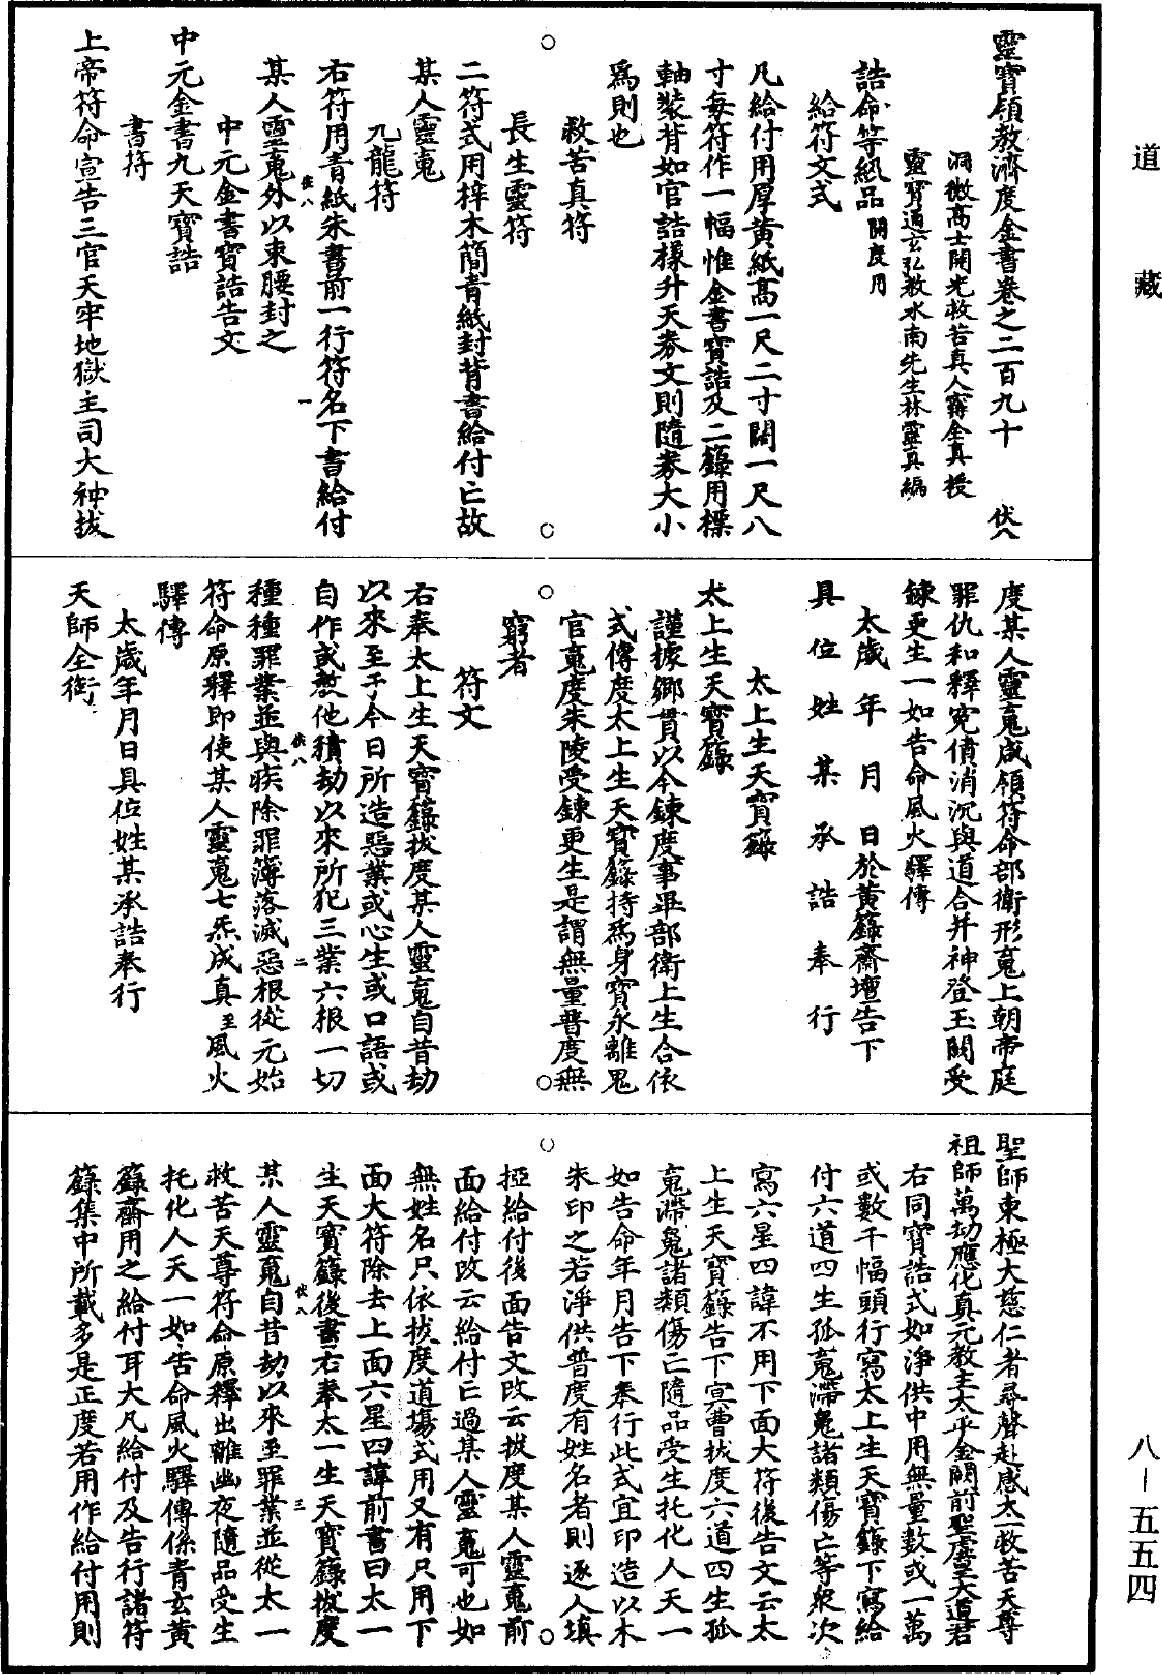 道藏
靈寶領教濟度金書卷之二百九十　伏八
洞微高士開光救苦真人甯全真授
靈寶通玄弘教水南先生林靈真編
誥命等紙品開度用
給符文式
凡給付用厚黃紙高一尺二寸闊一尺八
寸每符作一幅惟金書寶誥及二籙用標
軸裝背如官誥樣升天券文則隨券大小
爲則也
救苦真符
○　○
長生靈符
二符式用梓木簡青紙封背書給付亡故
某人靈䰟
九龍符
右符用青紙朱書前一行符名下書給付
伏八　一
某人靈䰟外以束腰封之
中元金書寶誥告文
中元金書九天寶誥
書符
上帝符命宣告三官天牢地獄主司大神拔
度某人靈䰟咸領符命部衛形䰟上朝帝庭
罪仇和釋冤債消沉與道合并神登玉闕受
鍊更生一如告命風火驛傳
太歲　年　月　日於黃籙齋壇告下
具位姓某承誥奉行
太上生天寶籙
太上生天寶籙
謹據鄉貫以今鍊度事畢部衛上生合依
式傳度太上生天寶籙持爲身寶永離鬼
官䰟度朱陵受鍊更生是謂無量普度無
○　○
窮者
符文
右奉太上生天寶籙拔度某人靈䰟自昔劫
以來至于今日所造惡業或心生或口語或
自作或愆他積劫以來所犯三業六根一切
伏八　二
種種罪業並與疾除罪簿落滅惡根從元始
符命原釋即使某人靈䰟七炁成真至風火
驛傳
太歲年月日具位姓某承誥奉行
天師全銜
聖師東極大慈仁者尋聲赴感太一救苦天尊
祖師萬劫應化真元教主太乎金闕前聖虛皇大道君
右同寶誥式如淨供中用無量數或一萬
或數千幅頭行寫太上生天寶籙下寫給
付六道四生孤䰟滯魄諸類傷亡等衆次
寫六星四諱不用下面大符後告文云太
上生天寶籙告下冥曹拔度六道四生孤
䰟滯魄諸類傷亡隨品受生托化人天一
如告命年月告下奉行此式宜印造以木
朱印之若淨供普度有姓名者則逐人填
○　○
挜給付後面告文改云拔度某人靈䰟前
面給付改云給付亡過某人靈䰟可也如
無姓名只依拔度道場式用又有只用下
面大符除去上面六星四諱前書曰太一
生天寶籙後書右奉太一生天寶籙拔度
伏八　三
某人靈䰟自昔劫以來至罪業並從太一
救苦天尊符命原釋出離幽夜隨品受生
托化人天一如告命風火驛傳係青玄黃
籙齋用之給付耳大凡給付及告行諸符
籙集中所載多是正度若用作給付用則
八—五五四